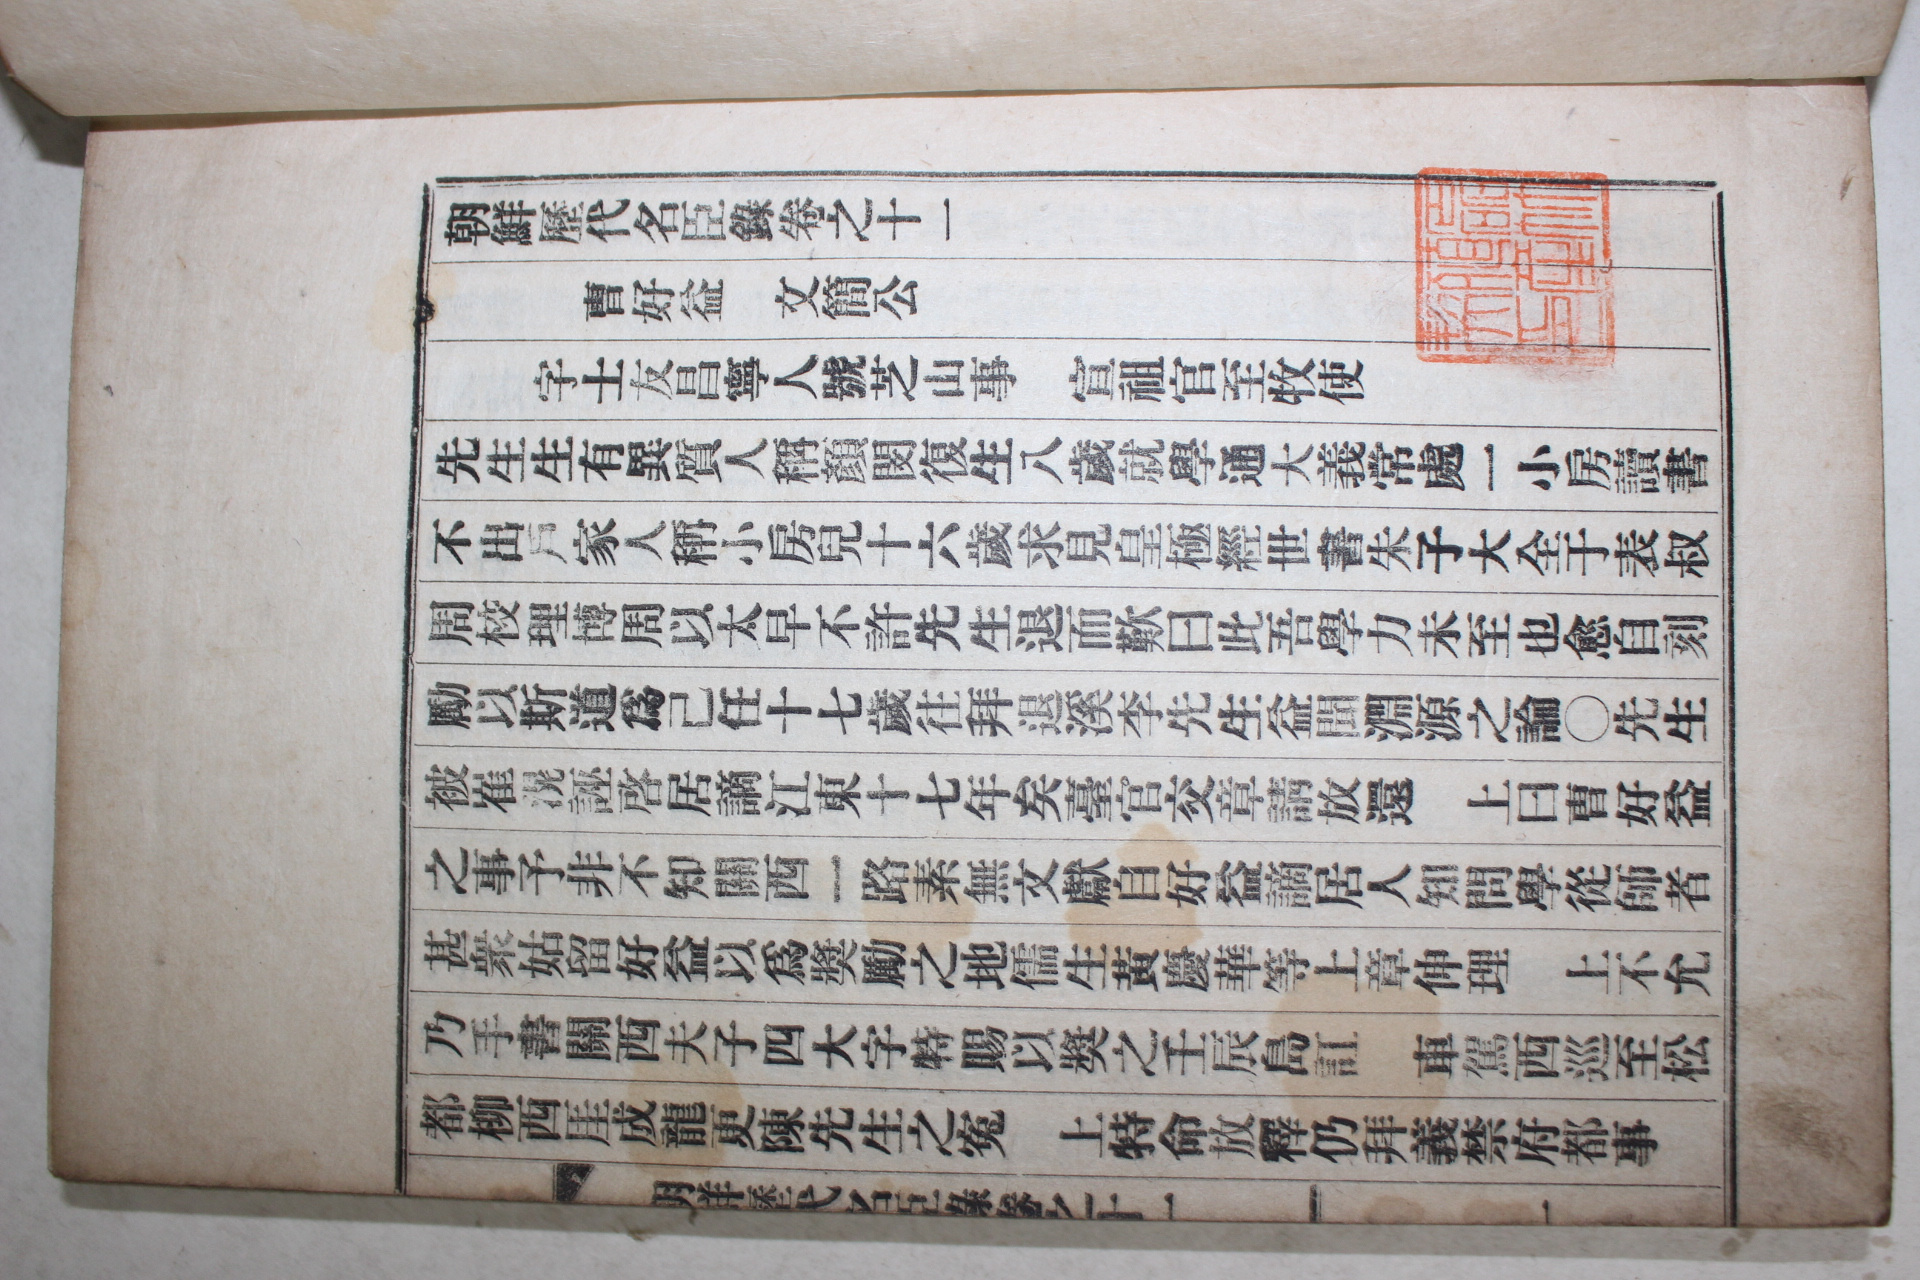 朝鮮歷代名臣錄卷之十一
曹好益　文簡公
字士友昌寧人號芝山事　宣祖官至牧使
先生生有異質人稱顔閔復生八歲就學通大義常處一小房讀書
不出戶家人稱小房兒十六歲求見皇極經世書朱子大全于表叔
周校理博周以太早不許先生退而歎曰此吾學力未至也愈自刻
勵以斯道爲己任十七歲往拜退溪李先生益聞淵源之論○先生
被崔滉誣啓居謫江東十七年矣臺官交章請放還　上曰曹好益
之事予非不知關西一路素無文獻自好益謫居人知問學從師者
甚衆姑留好益以爲獎勵之地儒生黃慶華等上章伸理　上不允
乃手書關西夫子四大字特賜以獎之壬辰島訌　車駕西巡至松
都柳西厓成龍更陳先生之寃　上特命放釋仍拜義禁府都事
朝鮮歷代名臣錄卷之十一　一